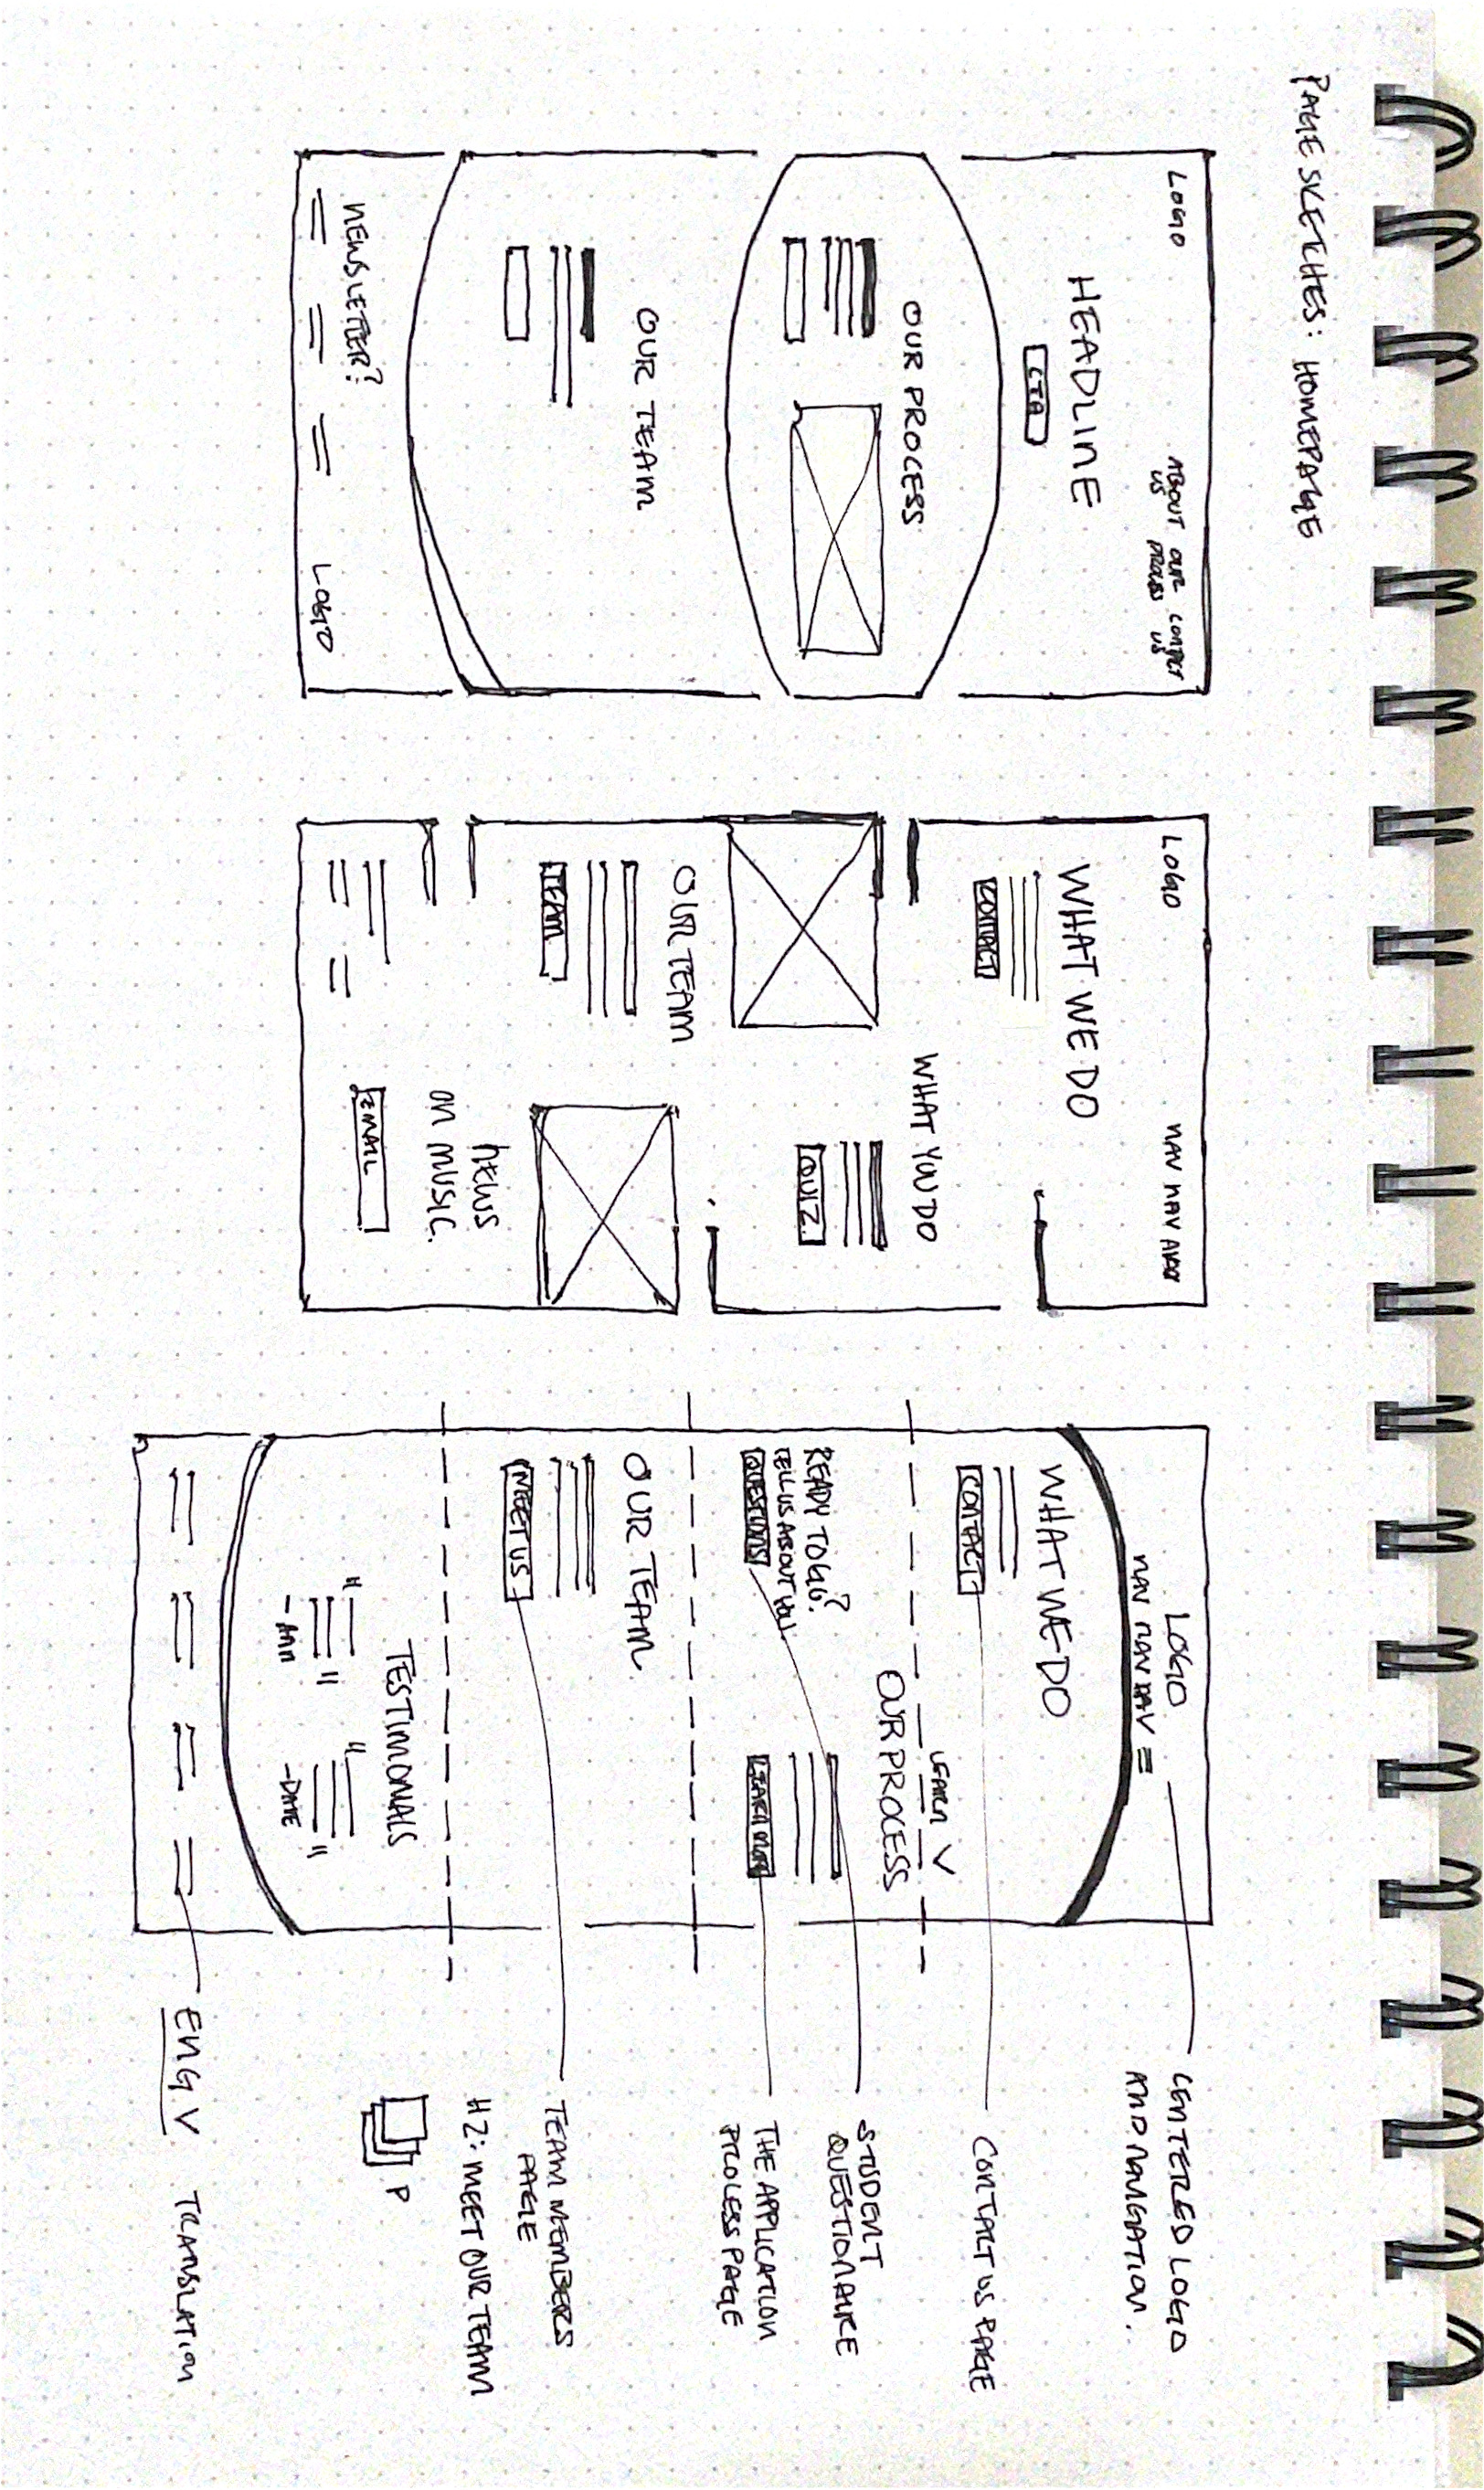 PAGE SKETCHES: HOMEPAGE
LOGO
ABOUT US
OUR PROCESS
CONTACT US
HEADLINE
CTA
OUR PROCESS
OUR TEAM
NEWSLETTER?
LOGO
LOGO
NAV NAV NAV
WHAT WE DO
CONTACT
WHAT YOU DO
QUIZ
OUR TEAM
TEAM
NEWS
ON MUSIC.
EMAIL
LOGO
NAV NAV NAV
WHAT WE DO
CONTACT
LEARN V
OUR PROCESS
READY TO GO?
TELL US ABOUT YOU.
QUESTIONS
LEARN MORE
OUR TEAM
MEET US
TESTIMONIALS
" "
" "
-ANN
CENTERED LOGO
AND NAVIGATION.
CONTACT US PAGE
STUDENT
QUESTIONAIRE
THE APPLICATION
PROCESS PAGE
TEAM MEMBERS
PAGE
H2: MEET OUR TEAM
P
ENG V TRANSLATION